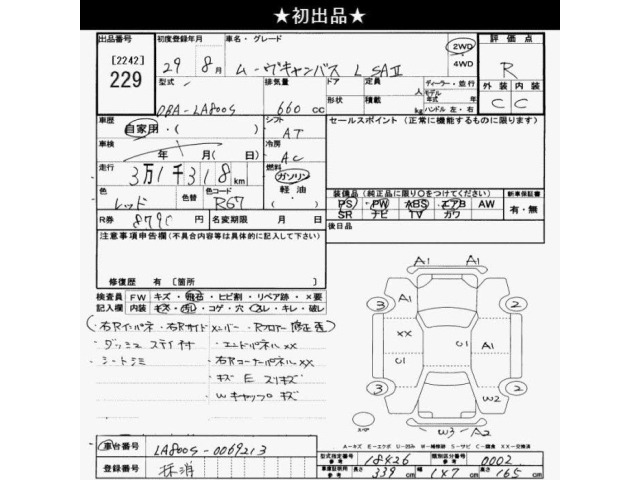 ★初出品★
出品番号
[2242]
229
初度登録年月
29年 8月
車名・グレード
ムーヴキャンバス L SAⅡ
2WD
4WD
評価点
R
外装 内装
C C
型式
DBA-LA800S
排気量
660 cc
ドア
形状
定員
人
積載
kg
ディーラー・並行
モデル
年式 年
ハンドル 左・右
車歴
自家用・( )
シフト
AT
車検
年 月(日)
冷房
AC
走行
3万1千318km
燃料
ガソリン
軽油
色
レッド
色替
色コード
R67
R券
8790 円
名変期限 月 日
セールスポイント(正常に機能するものに限ります)
装備品(純正品に限り〇をつけてください)
PS PW ABS エアB AW
SR ナビ TV カワ
新車保証書
有・無
後日品
注意事項申告欄(不具合内容等は具体的に記入して下さい)
修復歴 有[箇所 ]
検査員
記入欄
FW キズ・飛石・ヒビ割・リペア跡・×要
内装 キズ・汚レ・コゲ・穴・スレ・キレ・破レ
・右Rインパネ ・右Rサイドメンバー ・Rフロアー 修正歪
・ダッシュ ステイ付
・エンドパネルXX
・シートシミ
・右RコーナーパネルXX
・キズ E スリキズ
・Wキャップ キズ
A1 A1
3 A1 2
XX C1 A1
C1
3 W2 2
W3 A2
スペア
A-キズ E-エクボ U-凹み W-補修跡 S-サビ C-腐食 XX-交換済
車台番号
LA800S-0069213
登録番号
抹消
型式指定番号
参考
18426
類別区分番号
参考
0002
車庫証明用
参考
長さ 339cm 幅 147cm 高さ 165cm